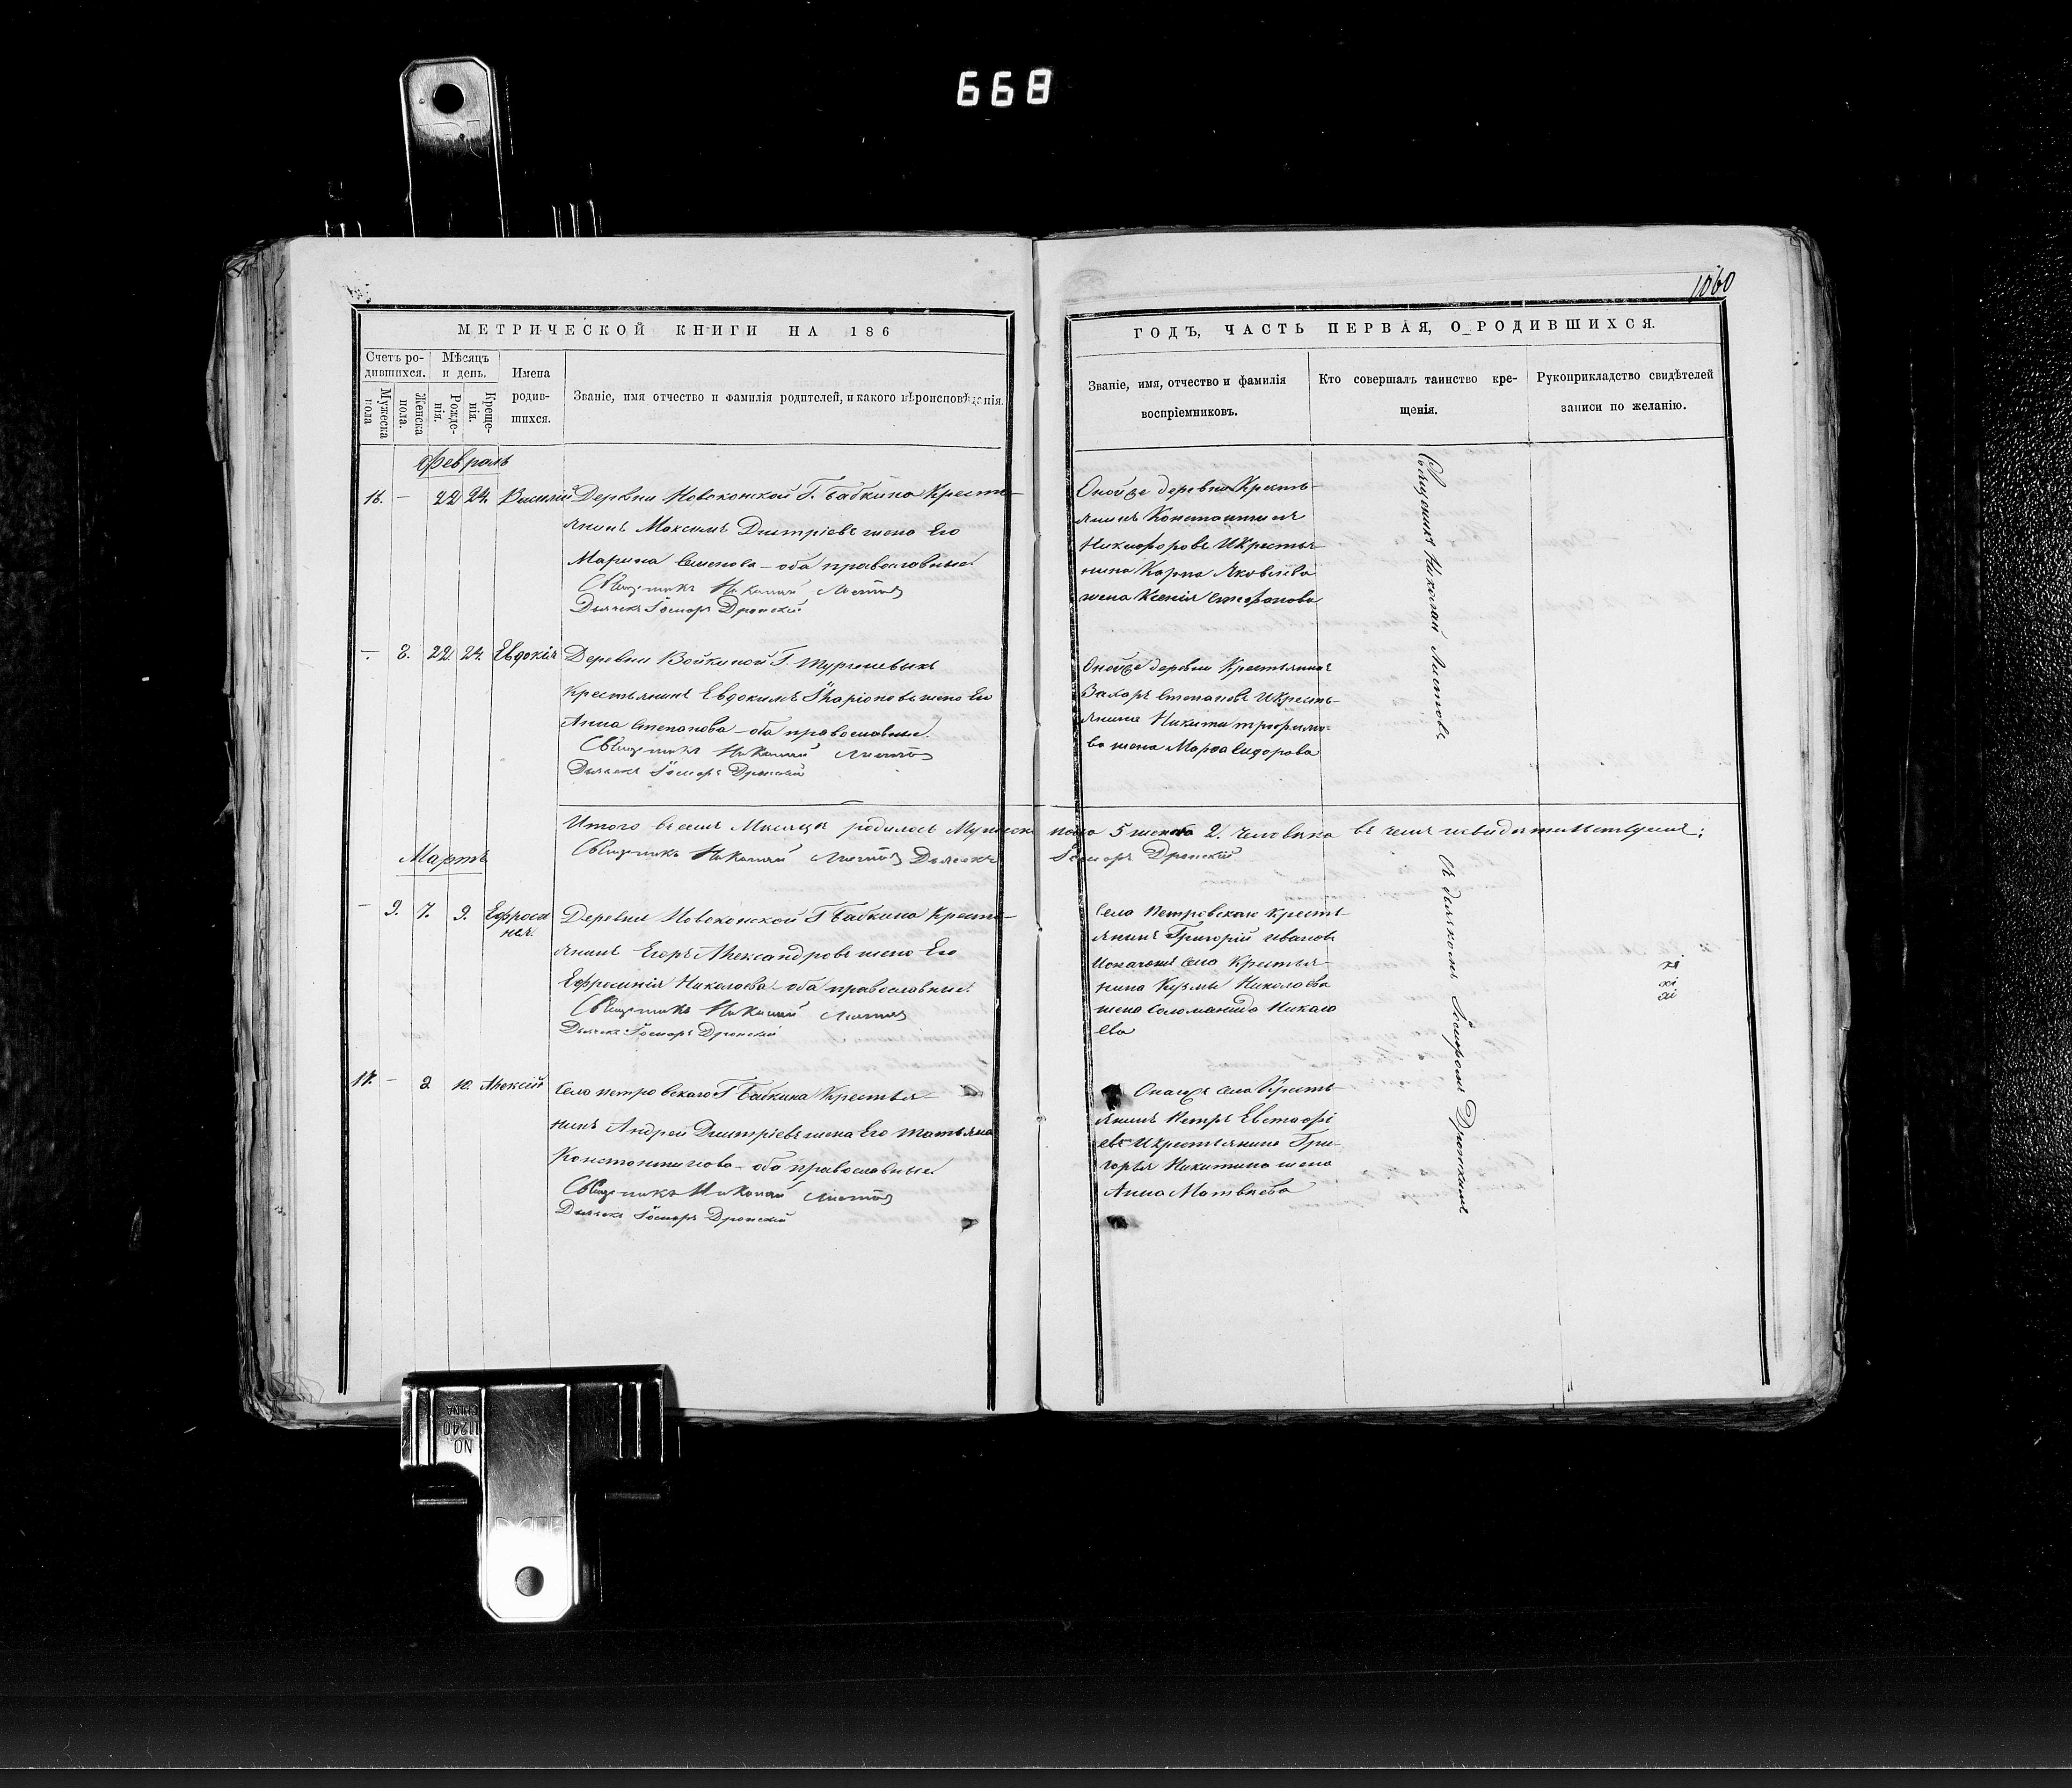 668
1060
МЕТРИЧЕСКОЙ КНИГИ НА 186
ГОДЪ, ЧАСТЬ ПЕРВАЯ, О РОДИВШИХСЯ.
Счетъ ро-
дившихся.
Мужеска
пола
Женска
пола.
Мѣсяцъ
и день.
Рожде-
нія.
Креще-
нія.
Имена
родив-
шихся.
Званіе, имя отчество и фамилія родителей, и какого вѣроисповѣданія.
Званіе, имя, отчество и фамилія
воспріемниковъ.
Кто совершалъ таинство кре-
щенія.
Рукоприкладство свидѣтелей
записи по желанію.
Февраль
16. — 22 24. Василій Деревни Новоконской Г. Бабкина Кресть-
янинъ Максимъ Дмитріевъ жена Его
Марина Семенова - оба православные.
Священникъ Николай
Дьячекъ
Оной же деревни Кресть-
янинъ Константинъ
Никифоровъ И Крестья-
нина Карпа Яковлева
жена Ксенія Стефанова
Священникъ Николай
—. 8. 22. 24. Евдокія Деревни Войкиной Г.
Крестьянинъ Евдокимъ жена Его
Анна Степанова - оба православные.
Священникъ Николай
Дьячекъ
Оной же деревни Крестьянинъ
Захаръ Степановъ И Кресть-
янина Никиты Трофимо-
ва жена Марфа Сидорова
Итого въ семъ Месяце родилось Мужеска пола 5 женска 2. человека въ чемъ и свидетельствуемъ:
Священникъ Николай Дьячекъ
Мартъ
— 9. 7. 9. Ефроси
нія. Деревни Новоконской Г Бабкина Кресть-
янинъ Егоръ Александровъ жена Его
Ефросинія Николаева - оба православные.
Священникъ Николай
Дьячекъ
Села Петровскаго Крестъ-
янинъ Григорій Иванов
села Крестья-
нина Кузмы Николаева
жена Соломанида Никола
ева
съ дьячкомъ
17. — 9. 10. Алексій Села Петровскаго Г Бабкина Крестья-
нинъ Андрей Дмитріевъ жена Его Татьяна
Константинова - оба православные.
Священникъ Николай
Дьячекъ
села Кресть-
янинъ Петръ Евстафі
евъ И крестьянина Гри-
горья Никитина жена
Анна Матвеева